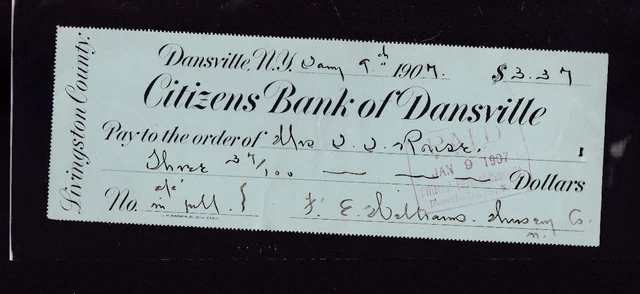 Livingston County:
Dansville, N.Y. Jany 9th 1907. $3.37
Citizens Bank of Dansville
Pay to the order of Mrs J. J.
Three 37/100 Dollars
PAID
JAN 9 1907
a/c
No. in full.
F. E. Williams Co.